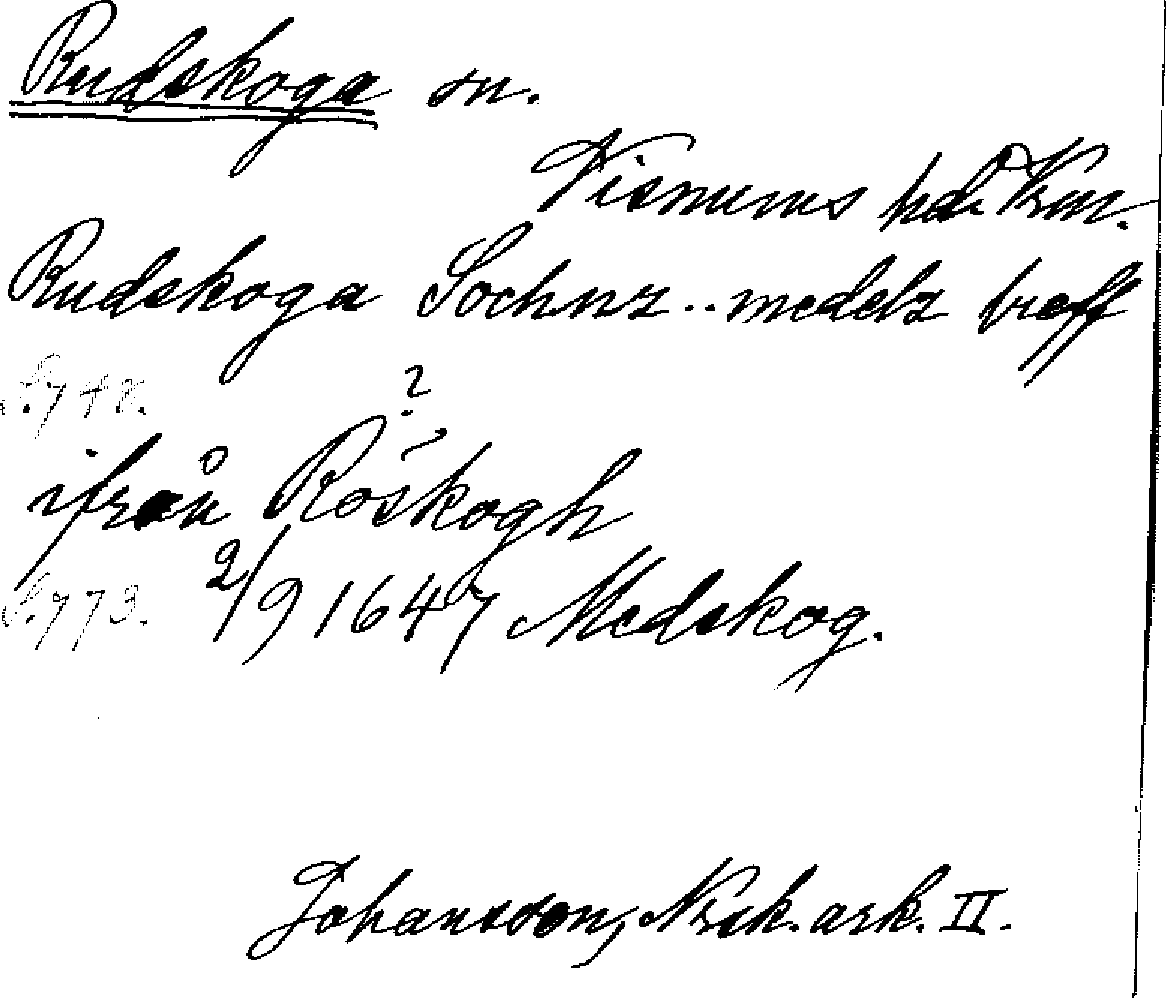 Rudskoga sn.
Visnums hd. Vrm.
Rudskoga Sochnz .. medelz breff
S. 748.
?
ifrån Röskogh
S. 773. 2/9 1647 Medskog.
Johansson, Nsk. ark. II.